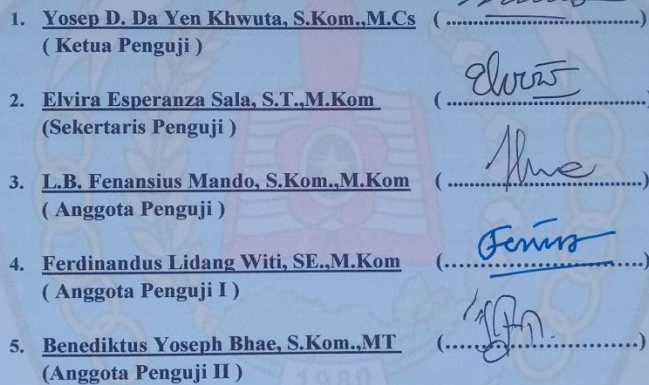 1. Yosep D. Da Yen Khwuta, S.Kom.,M.Cs (....................................)
( Ketua Penguji )
2. Elvira Esperanza Sala, S.T.,M.Kom (....................................
(Sekertaris Penguji )
3. L.B. Fenansius Mando, S.Kom.,M.Kom (....................................)
( Anggota Penguji )
4. Ferdinandus Lidang Witi, SE.,M.Kom (....................................)
( Anggota Penguji I )
5. Benediktus Yoseph Bhae, S.Kom.,MT (....................................)
(Anggota Penguji II )
1980